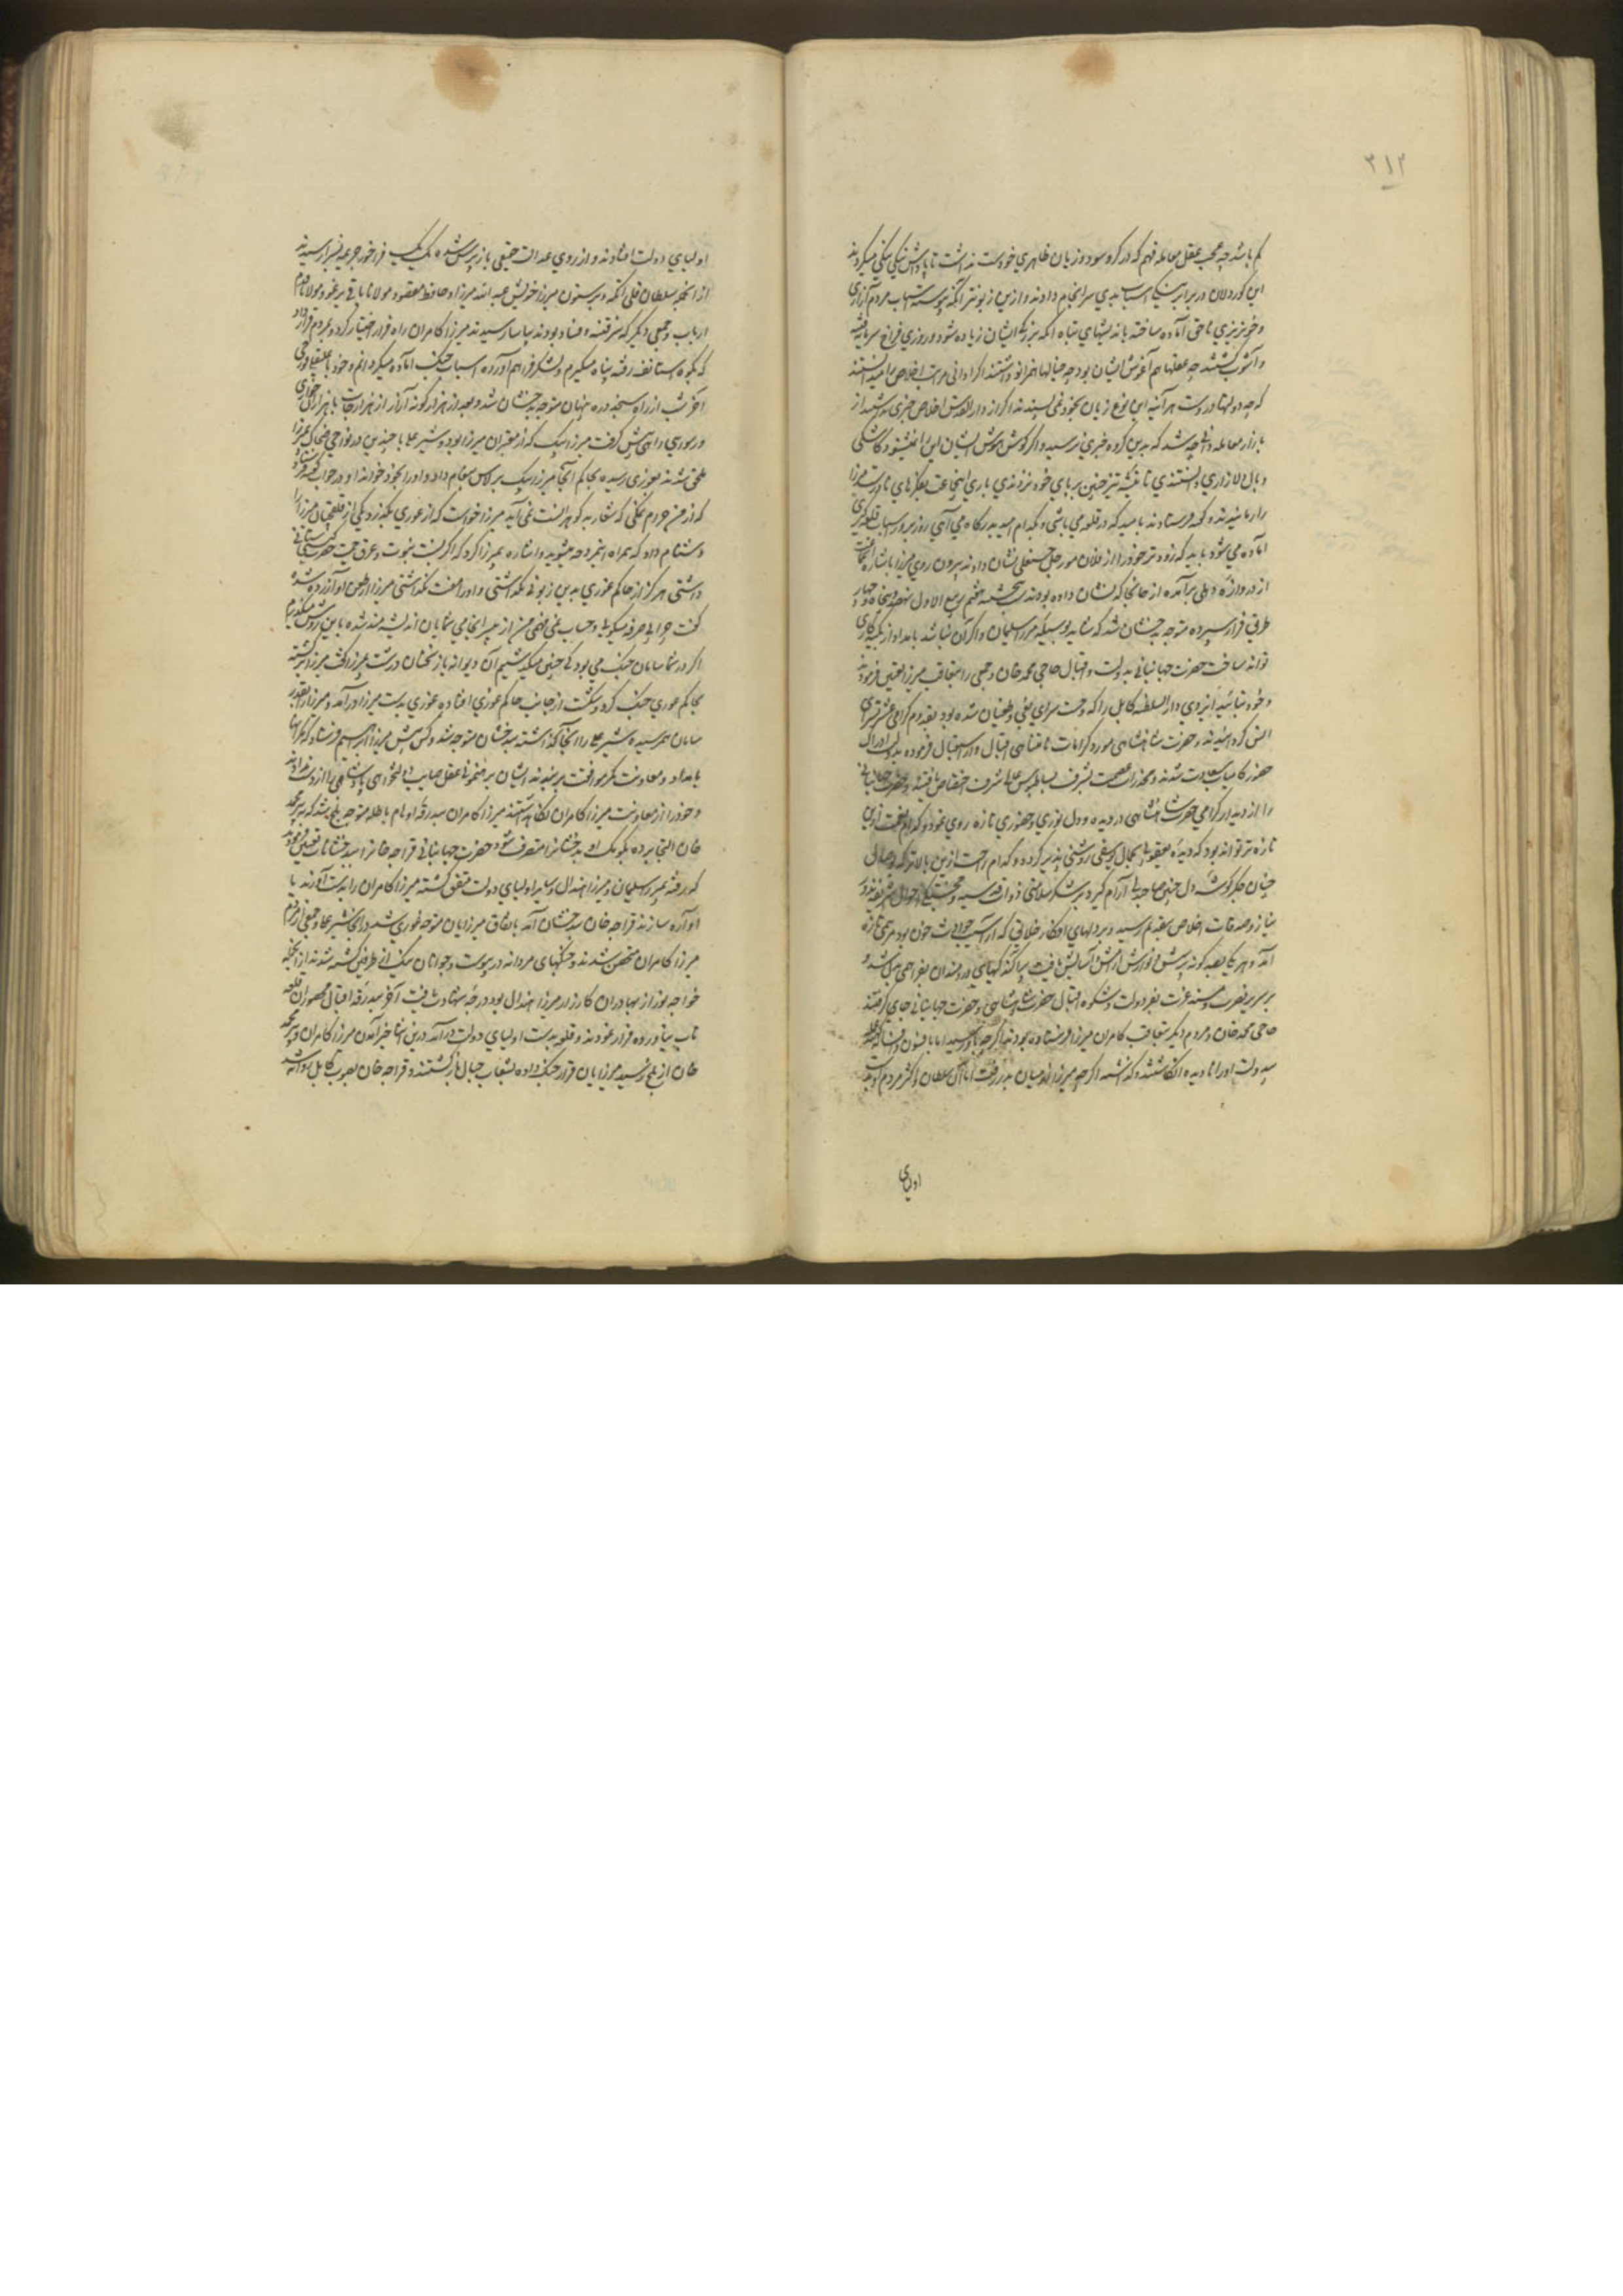 ۳۱۳
کم باشد چه عجب عقل معامله فهم که در کرو سود و زیان ظاهری خود است نداشت تا پاداش نیکی نیکی میکردند
این کوردلان در برابر نیکی اسباب بدی سرانجام دادند و ازین زبونتر آنکه پیوسته اسباب مردم آزاری
و خونریزی ناحق آماده ساخته باندیشهای تباه آنکه بزرگی ایشان زیاده شود و روزی فراخ سرمایه فتنه
و آشوب گشتند چه عقلها هم آغوش ایشان بود چه خیالها همزانو داشتند اگر ادانی مراتب اخلاص را میدانستند
که چه دولتها در وست هر آینه این نوع زیان بخود نمی پسندند اگر از دار القدس اخلاص خبری نداشتند از
بازار معامله دانی چه شد که بدین گروه خبری نرسید و اگر گوش هوش ایشان این را نشنود کاشکی
وبال دلازاری دانستندی تا تیشه تیز چنین بر پای خود نزدندی باری این جماعت بفکرهای نادرست میرزا
را رهانیدند و کس فرستادند بامید که در قلعه می باشی و بکدام امید بدرگاه می آیی روز بروز اسباب قلعه گیری
آماده می شود باید که زودتر خود را از فلان مورچل حسنقلی نشان دادند بیرون روی میرزا باشاره آنجماعت
از دروازه دهلی برآمده از جائی که نشان داده بودند پنجشنبه هفتم ربیع الاول نهصد و پنجاه و چهار
طریق فرار سپرده متوجه بدخشان شد که شاید بوسیله میرزا سلیمان و اگر آن نباشد بامداد اوزبکیه کاری
تواند ساخت حضرت جهانبانی بدولت و اقبال حاجی محمد خان و جمعی را بتعاقب میرزا تعیین فرمودند
و خود بتائید ایزدی دار السلطنه کابل را که وحشت سرای بغی و طغیان شده بود بقدوم گرامی عشرتسرای
انس گردانیدند و حضرت شاهنشاهی مورد کرامات نامتناهی اقبال وار استقبال فرموده بدولت ادراک
حضور کامیاب سعادت شدند و مخدرات عصمت بشرف بساط بوس عالی شرف اختصاص یافتند و حضرت جهانبانی
را از دیدار گرامی حضرت شاهنشاهی در دیده و دل نوری و حضوری تازه روی نمود و کدام نعمت ازین
تازه تر تواند بود که دیده یعقوب را بجمال یوسفی روشنی پذیر گردد و کدام راحت ازین بالاتر که وصال
چنان جگرگوشه دل چنین صاحبدلی آرام گیرد بر شکر سلامتی ذوات قدسیه و جمعیتگی احوال شریفه نذور
نیاز و صدقات اخلاص بتقدیم رسید و بر دلهای افکار خلایق که از آسیب حوادث خون بود مرهمی تازه
آمد و هر یکا بصد گونه پرسش و نوازش ارامش و آسایش یافت پراکندگیهای دردمندان بفراهمی مبدل شد و
بر سریر نصرت و مسند عزت بفر دولت و شکوه اقبال حضرت شاهنشاهی و حضرت جهانبانی جای گرفتند
حاجی محمد خان و مردم دیگر بتعاقب کامران میرزا فرستاده بودند اگرچه باو رسید اما بافسون و فسانه
بدولت او را نادیده انگاشتند و گذاشتند اگر چه میرزا از میان بدر رفت اما آق سلطان و اکثر مردم او بدست
اولیای
اولیای دولت افتادند و از روی عدالت حقیقی بازپرس شده یک یک فراخور جریمه بسزا رسیدند
از آنجمله سلطان قلی اتکه و پرستون میرزا خویش عبد الله میرزا و حافظ مقصود و مولانا باقی یرغو و مولانا قدم
ارباب و جمعی دیگر که سر فتنه و فساد بودند بیاسا رسیدند میرزا کامران راه فرار اختیار کرد و بمردم قرار داد
که بکوه استالف رفته پناه میگیرم و لشکر فراهم آورده اسباب جنگ آماده میگردانم و خود با علی قلی قورچی
آخر شب از راه سنجد دره پنهان متوجه بدخشان شد و بعد از هزار گونه آزار از هزارجات با هزاران خواری
و رسوایی راهی پیش گرفت میرزا بیک که از معتبران میرزا بود و شیر علی با چندین در نواحی ضحاک بمیرزا
ملحق شدند بغوری رسیده بحاکم آنجا میرزا بیک برلاس پیغام داد و او را بخود خواند او در جواب گفته فرستاد
که از من حرام نمکی که شعار بد گوهرانست نمی آید میرزا خواست که از غوری بگذرد یکی از قلقچیان میرزا را
دشنام داد که همراه اینمرد چه میشوید و اشاره بمیرزا کرد که اگر نسبت بنوت و عرق حمیت حضرت گیتی ستانی
داشتی هرگز از حاکم غوری بدین زبونی نگذاشتی و او را مفت نگذاشتی میرزا از طعن او آزرده شده
گفت چرا بی صرفه میگویی و حساب نمی فهمی من از بی سرانجامی شمایان اندیشه مند شده باین روش میگذرم
اگر در شما سامان جنگ می بود کی چنین میگذشتیم آن دیوانه باز سخنان درشت بمیرزا گفت میرزا برگشته
بحاکم غوری جنگ کرد و شکست از جانب حاکم غوری افتاده غوری بدست میرزا در آمد و میرزا را بقدر
سامان بهم رسیده شیر علی را آنجا گذاشته ببدخشان متوجه شد و کس پیش میرزا ابراهیم فرستاد که گرانها
بامداد و معاونت کمر موافقت بر بندند ایشان برهنمونی عقل صایب دولتخواهی پادشاهی را از دست نداده
و خود را از معاونت میرزا کامران نگاه داشتند میرزا کامران ببدرقه اوهام باطله متوجه بلخ شد که بپیر محمد
خان التجا برده بکومک او بدخشانرا متصرف شود حضرت جهانبانی قراجه خانرا ببدخشانات تعیین فرمودند
که رفته بمیرزا سلیمان و میرزا هندال و سایر اولیای دولت متفق گشته میرزا کامران را بدست آورند یا
آواره سازند قراجه خان ببدخشان آمد باتفاق میرزایان متوجه غوری شد و آنجا شیر علی و جمعی از مردم
میرزا کامران متحصن شدند و جنگهای مردانه در پیوست و جوانان جنگی از طرفین کشته شدند از آنجمله
خواجه نور از بهادران کارزار میرزا هندال بود درجه شهادت یافت آخر ببدرقه اقبال محصوران قلعه
تاب نیاورده فرار نمودند و قلعه بدست اولیای دولت در آمد درین اثنا خبر آمدن میرزا کامران و پیر محمد
خان از بلخ رسید میرزایان قرار جنگ داده بشعاب جبال بازگشتند و قراجه خان بصوب کابل روانه شد